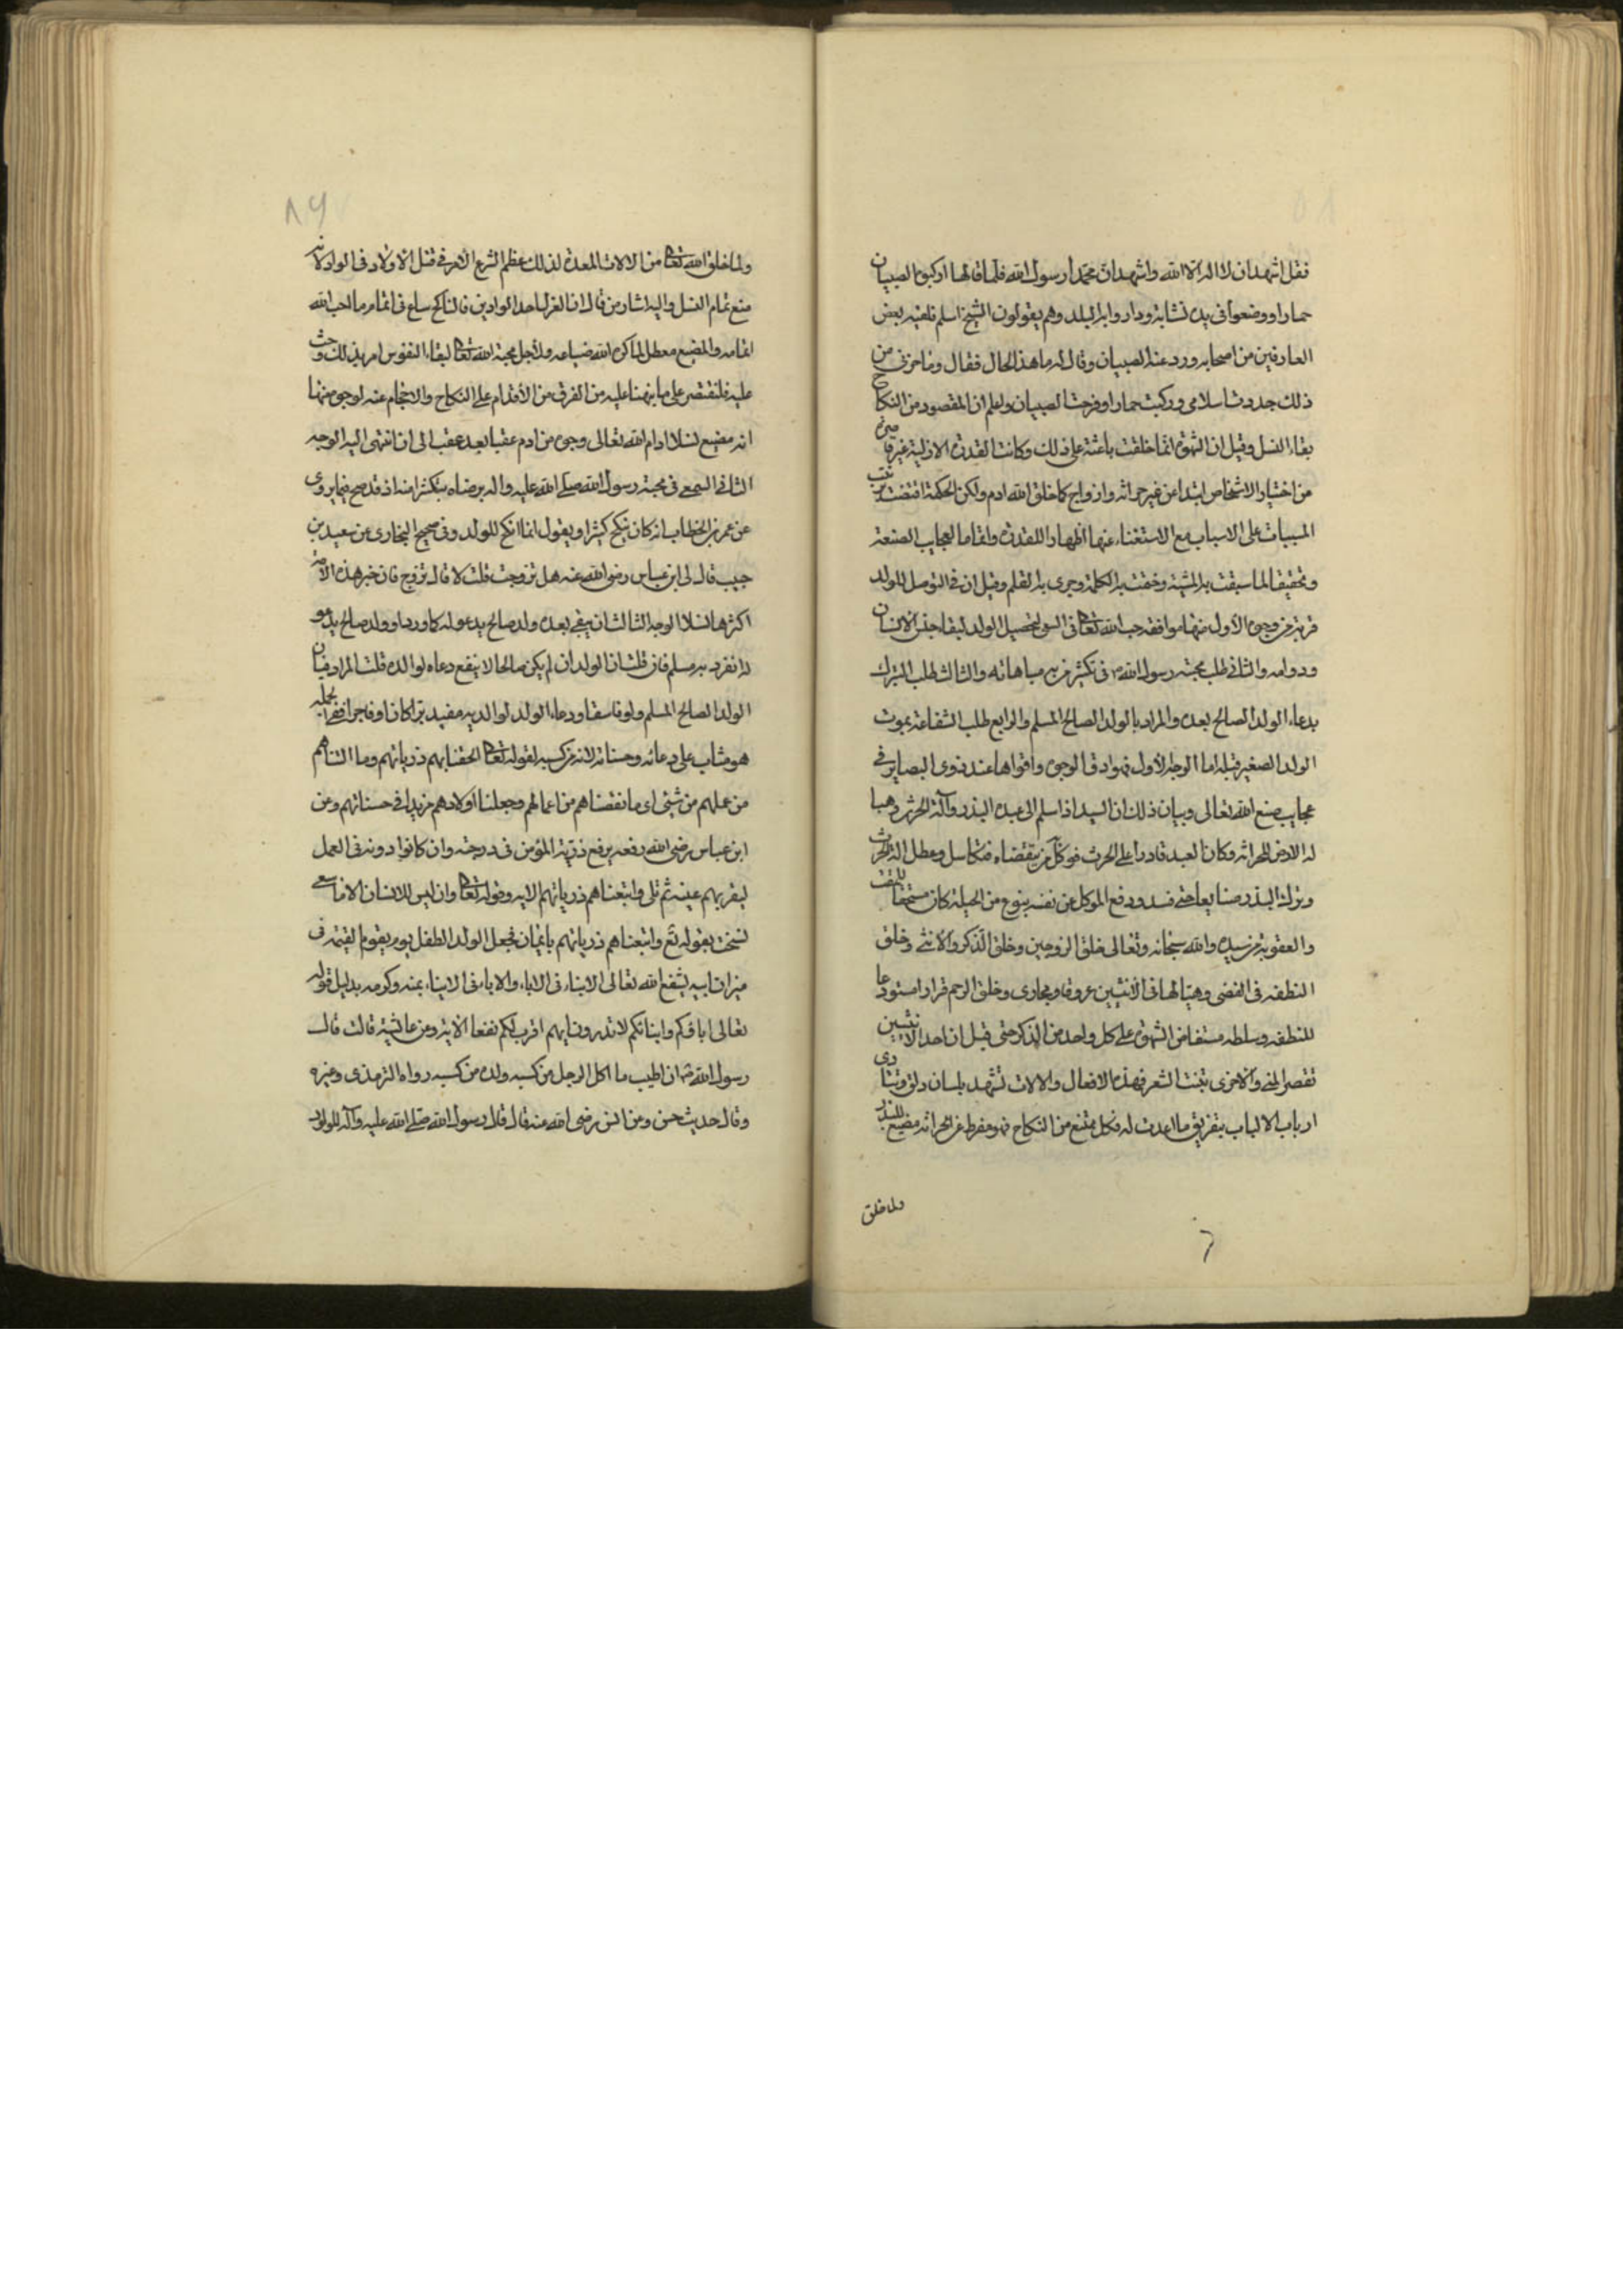 فقل اشهد ان لا اله الا الله واشهد ان محمدا رسول الله فلما قالها اركبوه الصبيان
حمارا ووضعوا فى يده نشابة وداروا به البلد وهم يقولون الشيخ اسلم فلقيه بعض
العارفين من اصحابه وردّ عنه الصبيان وقال له ما هذا الحال فقال وما حزنى من
ذلك جددت اسلامى وركبت حمارا وفرحت الصبيان ولعلم ان المقصود من النكاح
بقاء النسل وقيل ان الشهوة انما خلقت باعثة على ذلك وكانت القدرة الازلية غير قاصرة
من اختيار الاشخاص ابتداء من غير حراثة وازواج كما خلق الله ادم ولكن الحكمة اقتضت ترتيب
المسببات على الاسباب مع الاستغناء عنها اظهارا للقدرة واتماما لعجايب الصنعة
وتحقيقا لما سبقت به المشية وخقت به الكلمة وجرى به القلم وقيل ان فى التوصل للولد
قربة من وجوه الأول منها موافقة حب الله تعالى فى السعى لتحصيل الولد لبقاء جنس الانسان
ودوامه والثانى طلب محبة رسول الله ص فى تكثير من به مباهاته والثالث طلب التبرك
بدعاء الولد الصالح بعده والمراد بالولد الصالح المسلم والرابع طلب الشفاعة بموت
الولد الصغير قبله اما الوجه الأول فهو ادق الوجوه واقواها عند ذوى البصاير فى
عجايب صنع الله تعالى وبيان ذلك ان السيد اذا سلم الى عبده البذر وآلة الحرث وهيا
له الارض للحراثه وكان العبد قادرا على الحرث فوكّل من يتقضاه فتكاسل وعطل الة الحرث
وترك البذر ضايعا حتى فسد ودفع الموكل عن نفسه بنوع من الحيلة كان مستحقا للمقت
والعقوبة من سيده والله سبحانه وتعالى خلق الزوجين وخلق الذكر والانثى وخلق
النطفه فى الفضى وهيّا لها فى الانثيين عروقا ومجارى وخلق الرحم قرارا مستودعا
للنطفه وسلطه متقاضى الشهوة على كل واحد من الذكر حتى قيل ان احد الانثيين
تقصر المنى والاخرى تنبت الشعر فهذه الافعال والالات تشهد بلسان دلق وتنادى
ارباب الالباب بتفريق ما اعدت له فكل ممتنع من النكاح فهو مفرط عن الحراثه مضيع للبذر
ولما خلق
ولما خلق الله تعالى من الالات المعدة لذلك عظم الشرع الأمر فى قتل الاولاد فى الواد لانه
منع تمام النسل واليه اشار من قال ان العزل احد الوادين فالناكح ساع فى اتمام ما احب الله
اتمامه والمضيع معطل لما كره الله ضياعه ولاجل محبة الله تعالى لبقاء النفوس امر بذلك وحث
عليه فلنقتصر على ما نبهنا عليه من الفرق من الأقدام على النكاح والاحجام عنه لوجوه منها
انه مضيع نسلا ادام الله تعالى وجوده من ادم عقبا بعد عقب الى ان انتهى اليه الوجه
الثانى السعى فى محبة رسول الله صلى الله عليه واله برضاه بتكثير امته اذ قد صح فيما يروى
عن عمر بن الخطاب انه كان ينكح كثيرا ويقول انما انكح للولد وفى صحيح البخارى عن سعيد بن
جبيب قال لى ابن عباس رضى الله عنه هل تزوجت قلت لا قال تزوج فان خير هذه الأمة
اكثرها نسلا الوجه الثالث ان يبقى بعده ولد صالح يدعو له كما ورد او ولد صالح يدعو
له انفرد به مسلم فان قلت ان الولد ان لم يكن صالحا لا ينفع دعاه لوالده قلت المراد فيان
الولد الصالح المسلم ولو فاسقا ودعاء الولد لوالديه مفيد برا كان او فاجرا فى الجملة
هو مثاب على دعائه وحسناته لانه من كسبه لقوله تعالى الحقنا بهم ذرياتهم وما التناهم
من عملهم من شيئ اى ما نقصناهم من اعمالهم وجعلنا اولادهم مزيدا فى حسناتهم وعن
ابن عباس رضى الله رفعه يرفع ذرية المؤمن فى درجته وان كانوا دونه فى العمل
ليقر بهم عينه ثم تلى واتبعناهم ذرياتهم الايه وقوله تعالى وان ليس للانسان الا ما سعى
نسخت بقوله تع واتبعناهم ذرياتهم بايمان فجعل الولد الطفل يوم يقوم القيمة فى
ميزان ابيه يشفع الله تعالى الابناء فى الاباء والاباء فى الابناء بمنه وكرمه بدليل قوله
تعالى اباؤكم وابنائكم لا تدرون ايهم اقرب لكم نفعا الاية وعن عائشة قالت قال
رسول الله ص ان اطيب ما اكل الرجل من كسبه ولده من كسبه رواه الترمذى وغيره
وقال حديث حسن وعن انس رضى الله عنه قال قال رسول الله صلى الله عليه وآله للولود